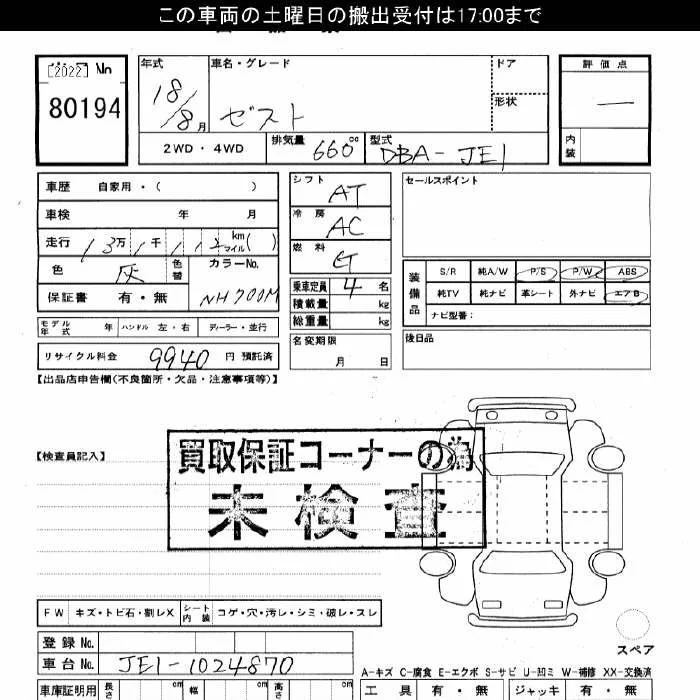 この車両の土曜日の搬出受付は17:00まで
[2022] No
80194
年式
18/8月
車名・グレード
ゼスト
ドア
形状
評価点
—
内装
2WD・4WD
排気量
660cc
型式
DBA-JE1
車歴 自家用・( )
車検 年 月
走行 13万1千112km マイル( )
色 灰 色替
カラーNo.
NH700M
保証書 有・無
モデル年式 年 ハンドル 左・右 ディーラー・並行
リサイクル料金 9940 円 預託済
シフト AT
冷房 AC
燃料
乗車定員 4 名
積載量 kg
総重量 kg
名変期限
月 日
セールスポイント
装備品
S/R 純A/W P/S P/W ABS
純TV 純ナビ 革シート 外ナビ エアB
ナビ型番:
後日品
【出品店申告欄(不良箇所・欠品・注意事項等)】
【検査員記入】
買取保証コーナーの為
未検査
FW キズ・トビ石・割レX シート内装 コゲ・穴・汚レ・シミ・破レ・スレ
登録No.
車台No. JE1-1024870
スペア
A-キズ C-腐食 E-エクボ S-サビ U-凹ミ W-補修 XX-交換済
車庫証明用 長さ cm 幅 cm 高さ cm
工具 有・無 ジャッキ 有・無